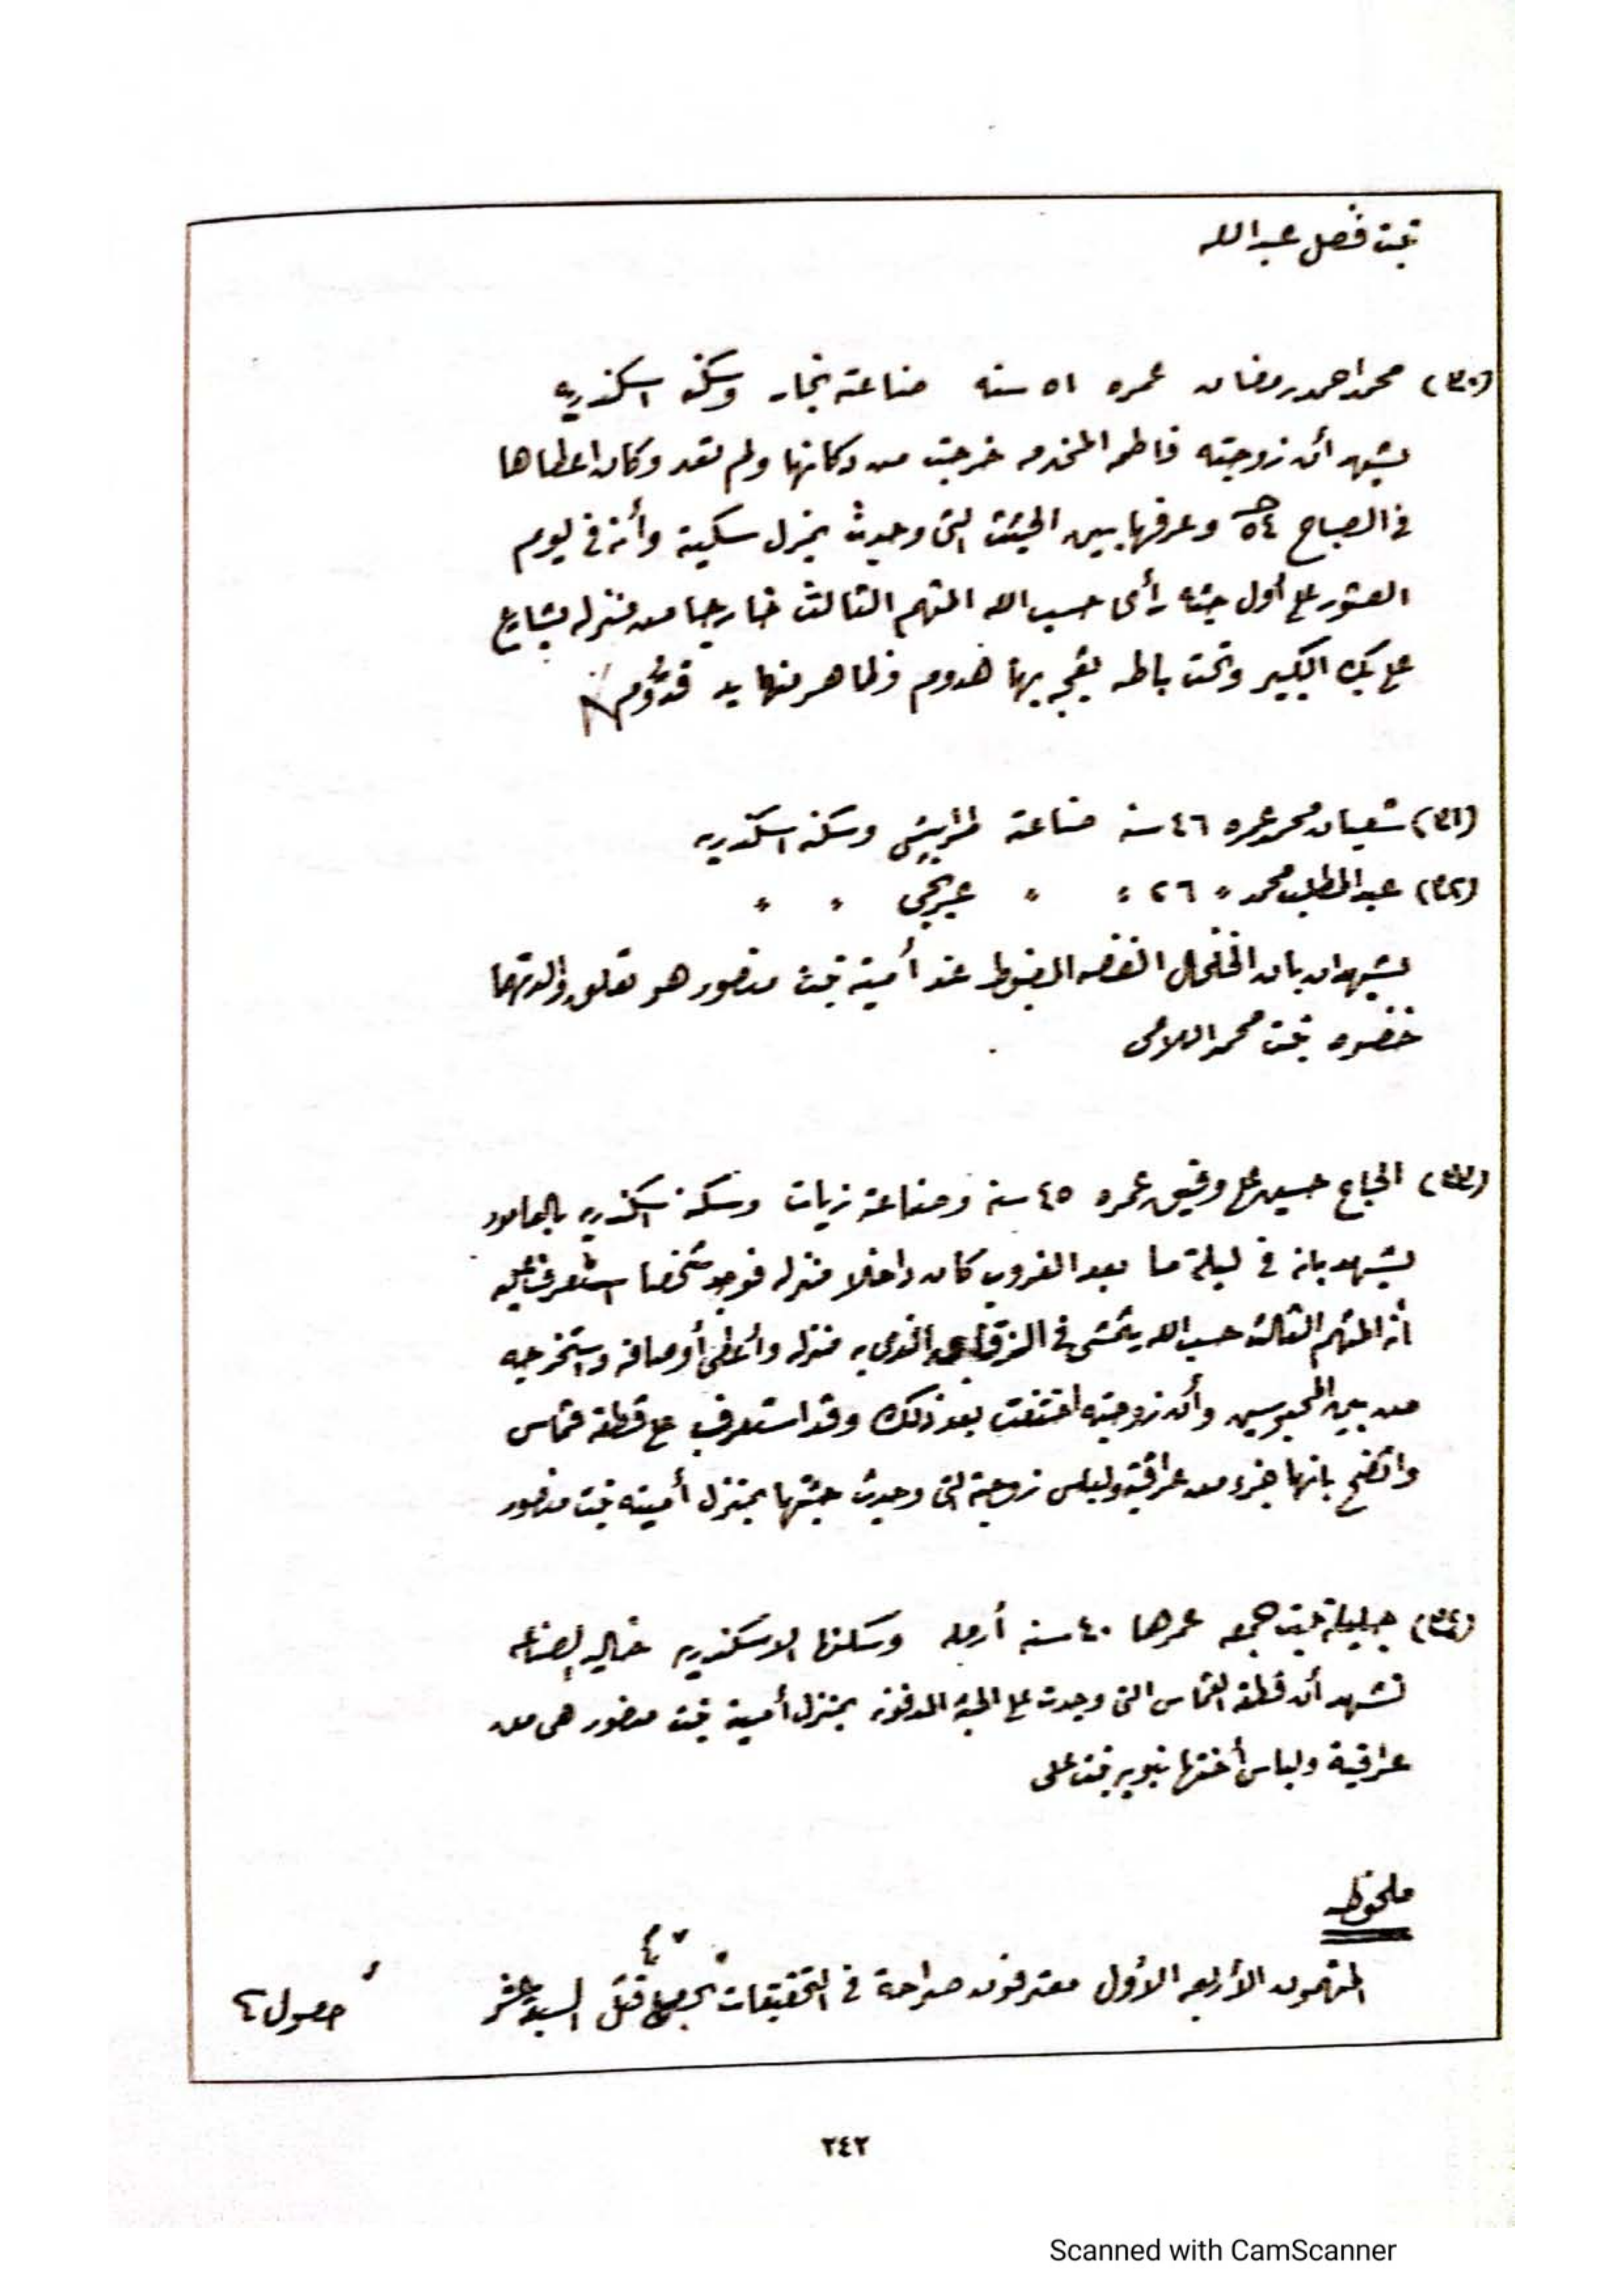 بنت فضل عبدالله
(٣٠) محمد احمد رمضان عمره ٥١ سنه صناعته نجار وسكنه اسكندريه
يشهد أن زوجته فاطمه المخدمه خرجت من دكانها ولم تعد وكان اعطاها
فى الصباح ٥٤ جـ وعرفها بين الجثث التى وجدت بمنزل سكينة وأنه فى يوم
العثور على أول جثه رأى حسب الله المتهم الثالث خارجا من منزله بشارع
على بك الكبير وتحت باطه بقجه بها هدوم وظاهر منها يد قدّوم
(٣١) شعبان محمد عمره ٤٦ سنه صناعته طرابيشى وسكنه اسكندريه
(٣٢) عبد المطلب محمد " ٢٦ " " عربجى " "
يشهدان بان الخلخال الفضه المضبوط عند أمينه بنت منصور هو تعلق والدتهما
خضره بنت محمد اللامى
(٣٣) الحاج حسين على وفيق عمره ٤٥ سنة وصناعته زيات وسكنه اسكندريه بالعامود
يشهد بانه فى ليلة ما بعد الغروب كان داخلا منزله فوجد شخصا استعرف عليه
أنه المتهم الثالث حسب الله يتمشى فى الزقاق الذى به منزله وأعطى أوصافه واستخرجه
من بين المحبوسين وأن زوجته اختفت بعد ذلك وقد استعرف على قطعة قماش
واتضح بانها جزء من عراقية ولباس زوجته التى وجدت جثتها بمنزل أمينه بنت منصور
(٣٤) جليله بنت جمعه عمرها ٤٠ سنه أرمله وسكنها الاسكندريه خاليه الصناعه
تشهد أن قطعة القماش التى وجدت على الجثة المدفونه بمنزل أمينة بنت منصور هى من
عراقية ولباس أختها نبويه بنت على
ملحوظه
المتهمون الأربعه الأول معترفون صراحة فى التحقيقات قتل السبعة عشر حصول
٢٤٢
Scanned with CamScanner